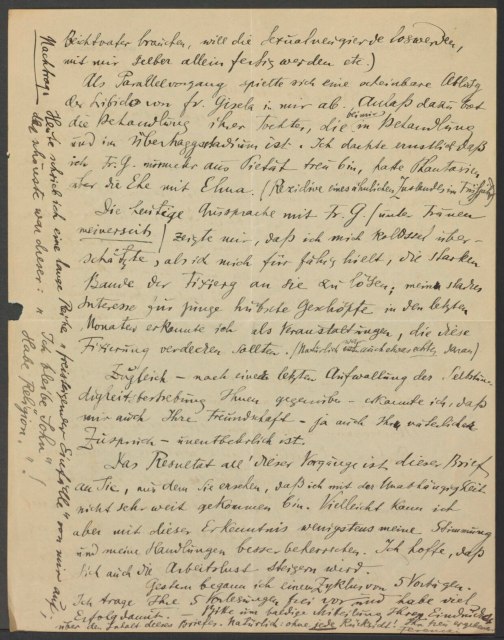 Beichtvater brauchen, will die Sexualneugierde loswerden,
mit mir selber allein fertig werden etc.)
Als Parallelvorgang spielte sich eine scheinbare Ablösg
der Libido von Fr. Gisela in mir ab. Anlaß dazu bot
die Behandlung ihrer Tochter, die bei mir in Behandlung
und im Übertraggsstadium ist. Ich dachte ernstlich daß
ich Fr. G. nurmehr aus Pietät treu bin, hatte Phantasien
über die Ehe mit Elma. (Rezidive eines ähnlichen Zustandes im Frühjahr)
Die heutige Aussprache mit Fr. G. (unter Tränen
meinerseits) zeigte mir, daß ich mich kolossal über-
schätzte, als ich mich für fähig hielt, die starken
Bande der Fixierg an sie zu lösen; mein starkes
Interesse für junge hübsche Geschöpfe in den letzten
Monaten erkannte ich als Veranstaltungen, die diese
Fixierung verdecken sollten. (Natürlich war auch etwas echtes daran)
Zugleich – nach einer letzten Aufwallung des Selbstän-
digkeitsbestrebung Ihnen gegenüber – erkannte ich, daß
mir auch Ihre Freundschaft – ja auch Ihr väterlicher
Zuspruch – unentbehrlich ist.
Das Resultat all' dieser Vorgänge ist dieser Brief
an Sie, aus dem Sie ersehen, daß ich mit der Unabhängigkeit
nicht sehr weit gekommen bin. Vielleicht kann ich
aber mit dieser Erkenntnis wenigstens meine Stimmung
und meine Handlungen besser beherrschen. Ich hoffe, daß
sich auch die Arbeitslust steigern wird.
Gestern begann ich einen Zyklus von 5 Vorträgen.
Ich trage Ihre 5 Vorlesungen frei vor und habe viel
Erfolg damit. Bitte um baldige Mitteilung Ihres Eindrucks
über den Inhalt dieses Briefes. Natürlich: ohne jede Rücksicht!
Nachtrag: Heute schrieb ich eine lange Reihe „freisteigender Einfälle" von mir auf;
der schönste war dieser: „Ich bleibe „Sohn"
Habe Religion."!